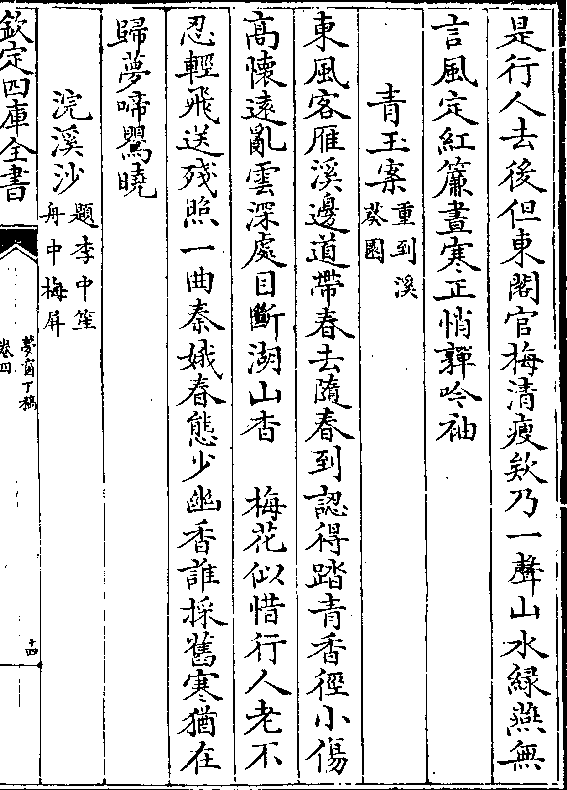 是行人去後但東閣官梅清瘦欸乃一聲山水綠燕無
言風定紅簾晝寒正悄嚲吟袖
青玉案重到溪
葵園
東風客雁溪邊道帶春去隨春到認得踏青香徑小傷
高懷遠亂雲深處目斷湖山杳　梅花似惜行人老不
忍輕飛送殘照一曲秦娥春態少幽香誰採舊寒猶在
歸夢啼鶯曉
浣溪沙題李中笙
舟中梅屏
欽定四庫全書
夢窗丁稿
卷四
十四